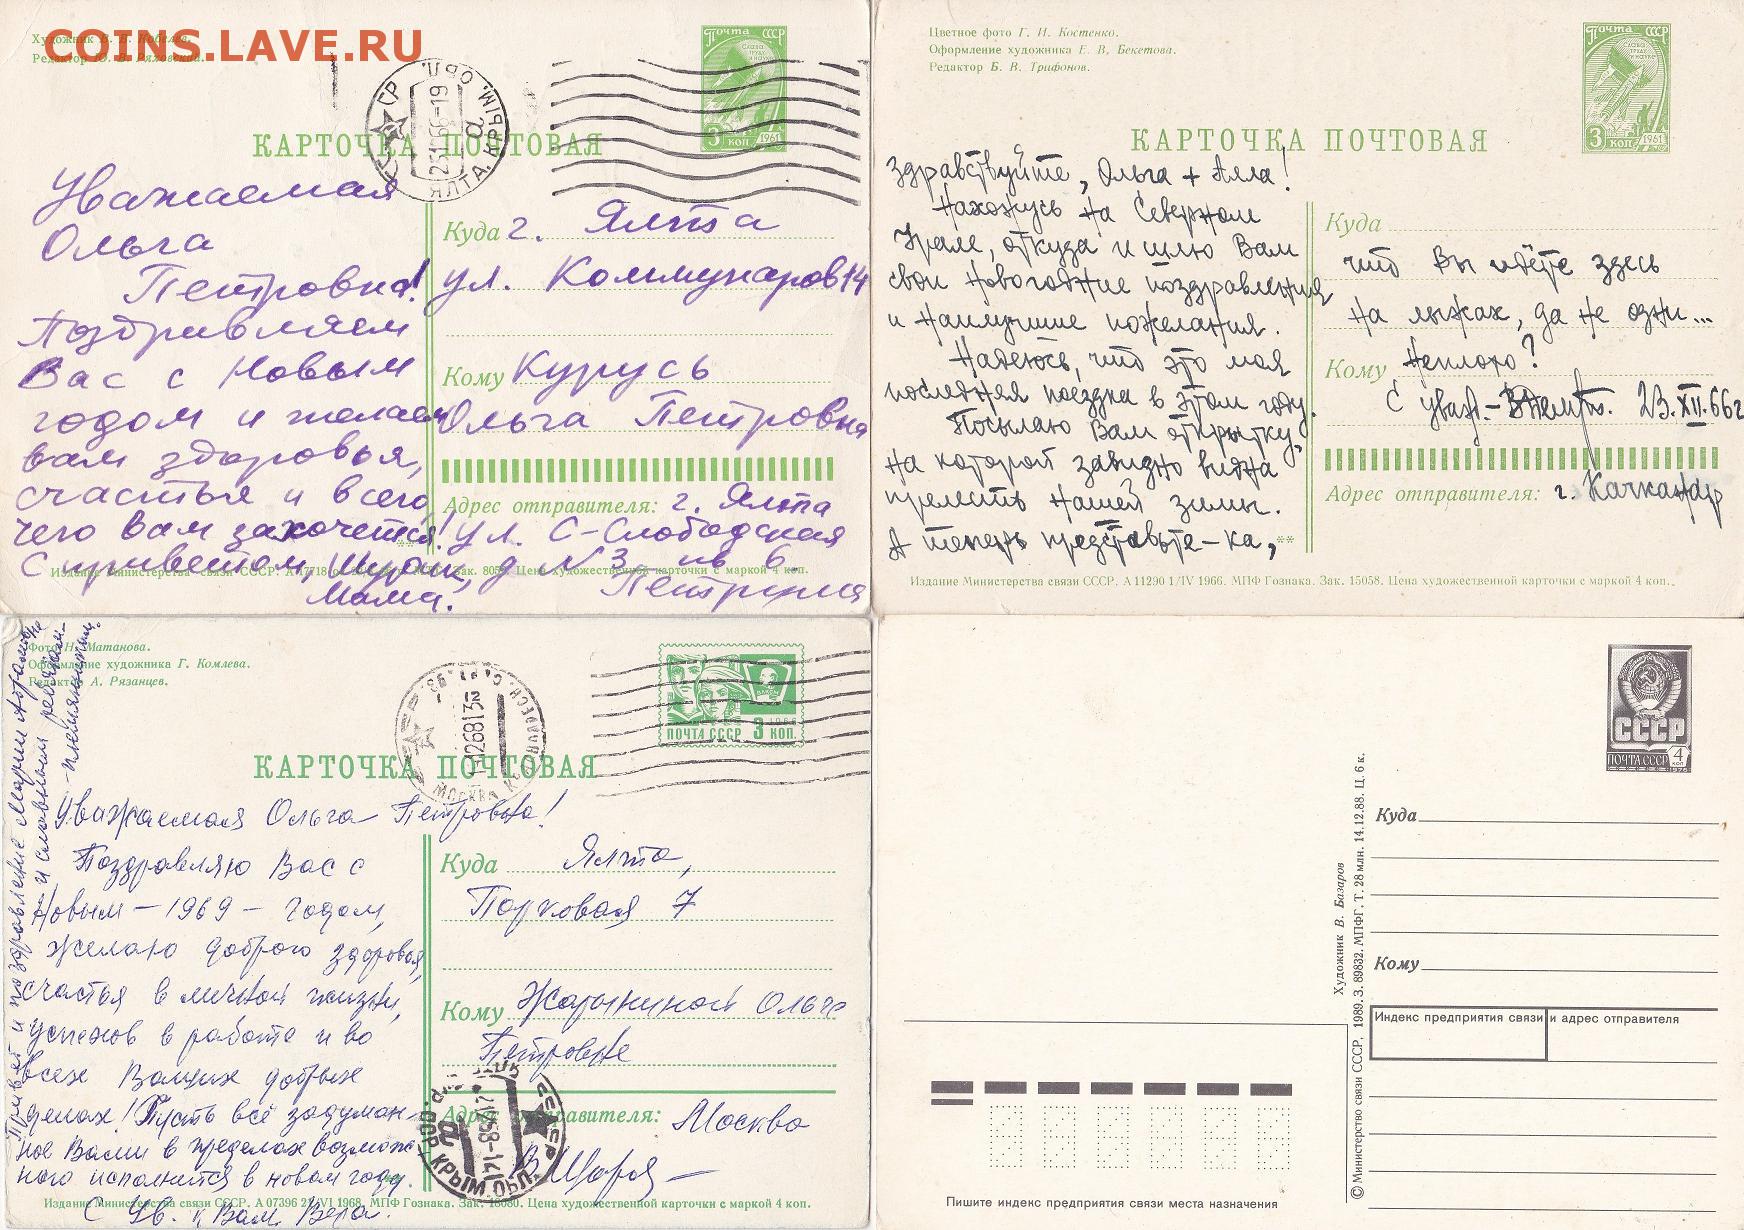 COINS.LAVE.RU
Художник В. В. Кобелев.
Редактор Ю. В. Ряховский.
Почта СССР
3 коп 1961
КАРТОЧКА ПОЧТОВАЯ
ЯЛТА, КРЫМ. ОБЛ.
Уважаемая
Ольга
Петровна!
Поздравляем
Вас с Новым
годом и желаем
вам здоровья,
счастья и всего,
чего вам захочется!
С приветом, Шурик,
мама.
Куда г. Ялта
ул. Коммунаров 14
Кому Курусь
Ольга Петровна
Адрес отправителя: г. Ялта
ул. С-Слободская
д №3 кв 6.
Издание Министерства связи СССР. Цена художественной карточки с маркой 4 коп.
Цветное фото Г. И. Костенко.
Оформление художника Е. В. Бекетова.
Редактор Б. В. Трифонов.
Почта СССР
Слава труду и науке
3 коп 1961
КАРТОЧКА ПОЧТОВАЯ
Здравствуйте, Ольга + Алла!
Нахожусь на Северном
Урале, откуда и шлю Вам
свои новогодние поздравления
и наилучшие пожелания.
Надеюсь, что это моя
последняя поездка в этом году.
Посылаю Вам открытку,
на которой завидно видна
прелесть нашей зимы.
А теперь представьте-ка,
Куда
что Вы идёте здесь
на лыжах, да не одни...
Кому Неплохо?
С уваж. 23.XII.66г
Адрес отправителя: г. Качканар
Издание Министерства связи СССР. А 11290 1/IV 1966. МПФ Гознака. Зак. 15058. Цена художественной карточки с маркой 4 коп.
Фото Н. Матанова.
Оформление художника Г. Комлева.
Редактор А. Рязанцев.
ВЛКСМ
ПОЧТА СССР 3 КОП.
КАРТОЧКА ПОЧТОВАЯ
МОСКВА
Уважаемая Ольга Петровна!
Поздравляю Вас с
Новым – 1969 – годом,
желаю доброго здоровья,
счастья в личной жизни,
успехов в работе и во
всех Ваших добрых
делах! Пусть всё задуман-
ное Вами в пределах возмож-
ного исполнится в новом году.
С ув. к Вам Вера.
Привет и поздравление Марии
Куда Ялта,
Парковая 7
Кому Жарыниной Ольге
Петровне
Адрес отправителя: Москва
КРЫМ. ОБЛ.
Издание Министерства связи СССР. А 07396 1968. МПФ Гознака. Зак. Цена художественной карточки с маркой 4 коп.
СССР
ПОЧТА СССР 4 коп
Куда
Кому
Индекс предприятия связи и адрес отправителя
Художник В. Базаров
© Министерство связи СССР, 1989. З. 89832. МПФГ. Т. 28 млн. 14.12.88. Ц. 6 к.
Пишите индекс предприятия связи места назначения